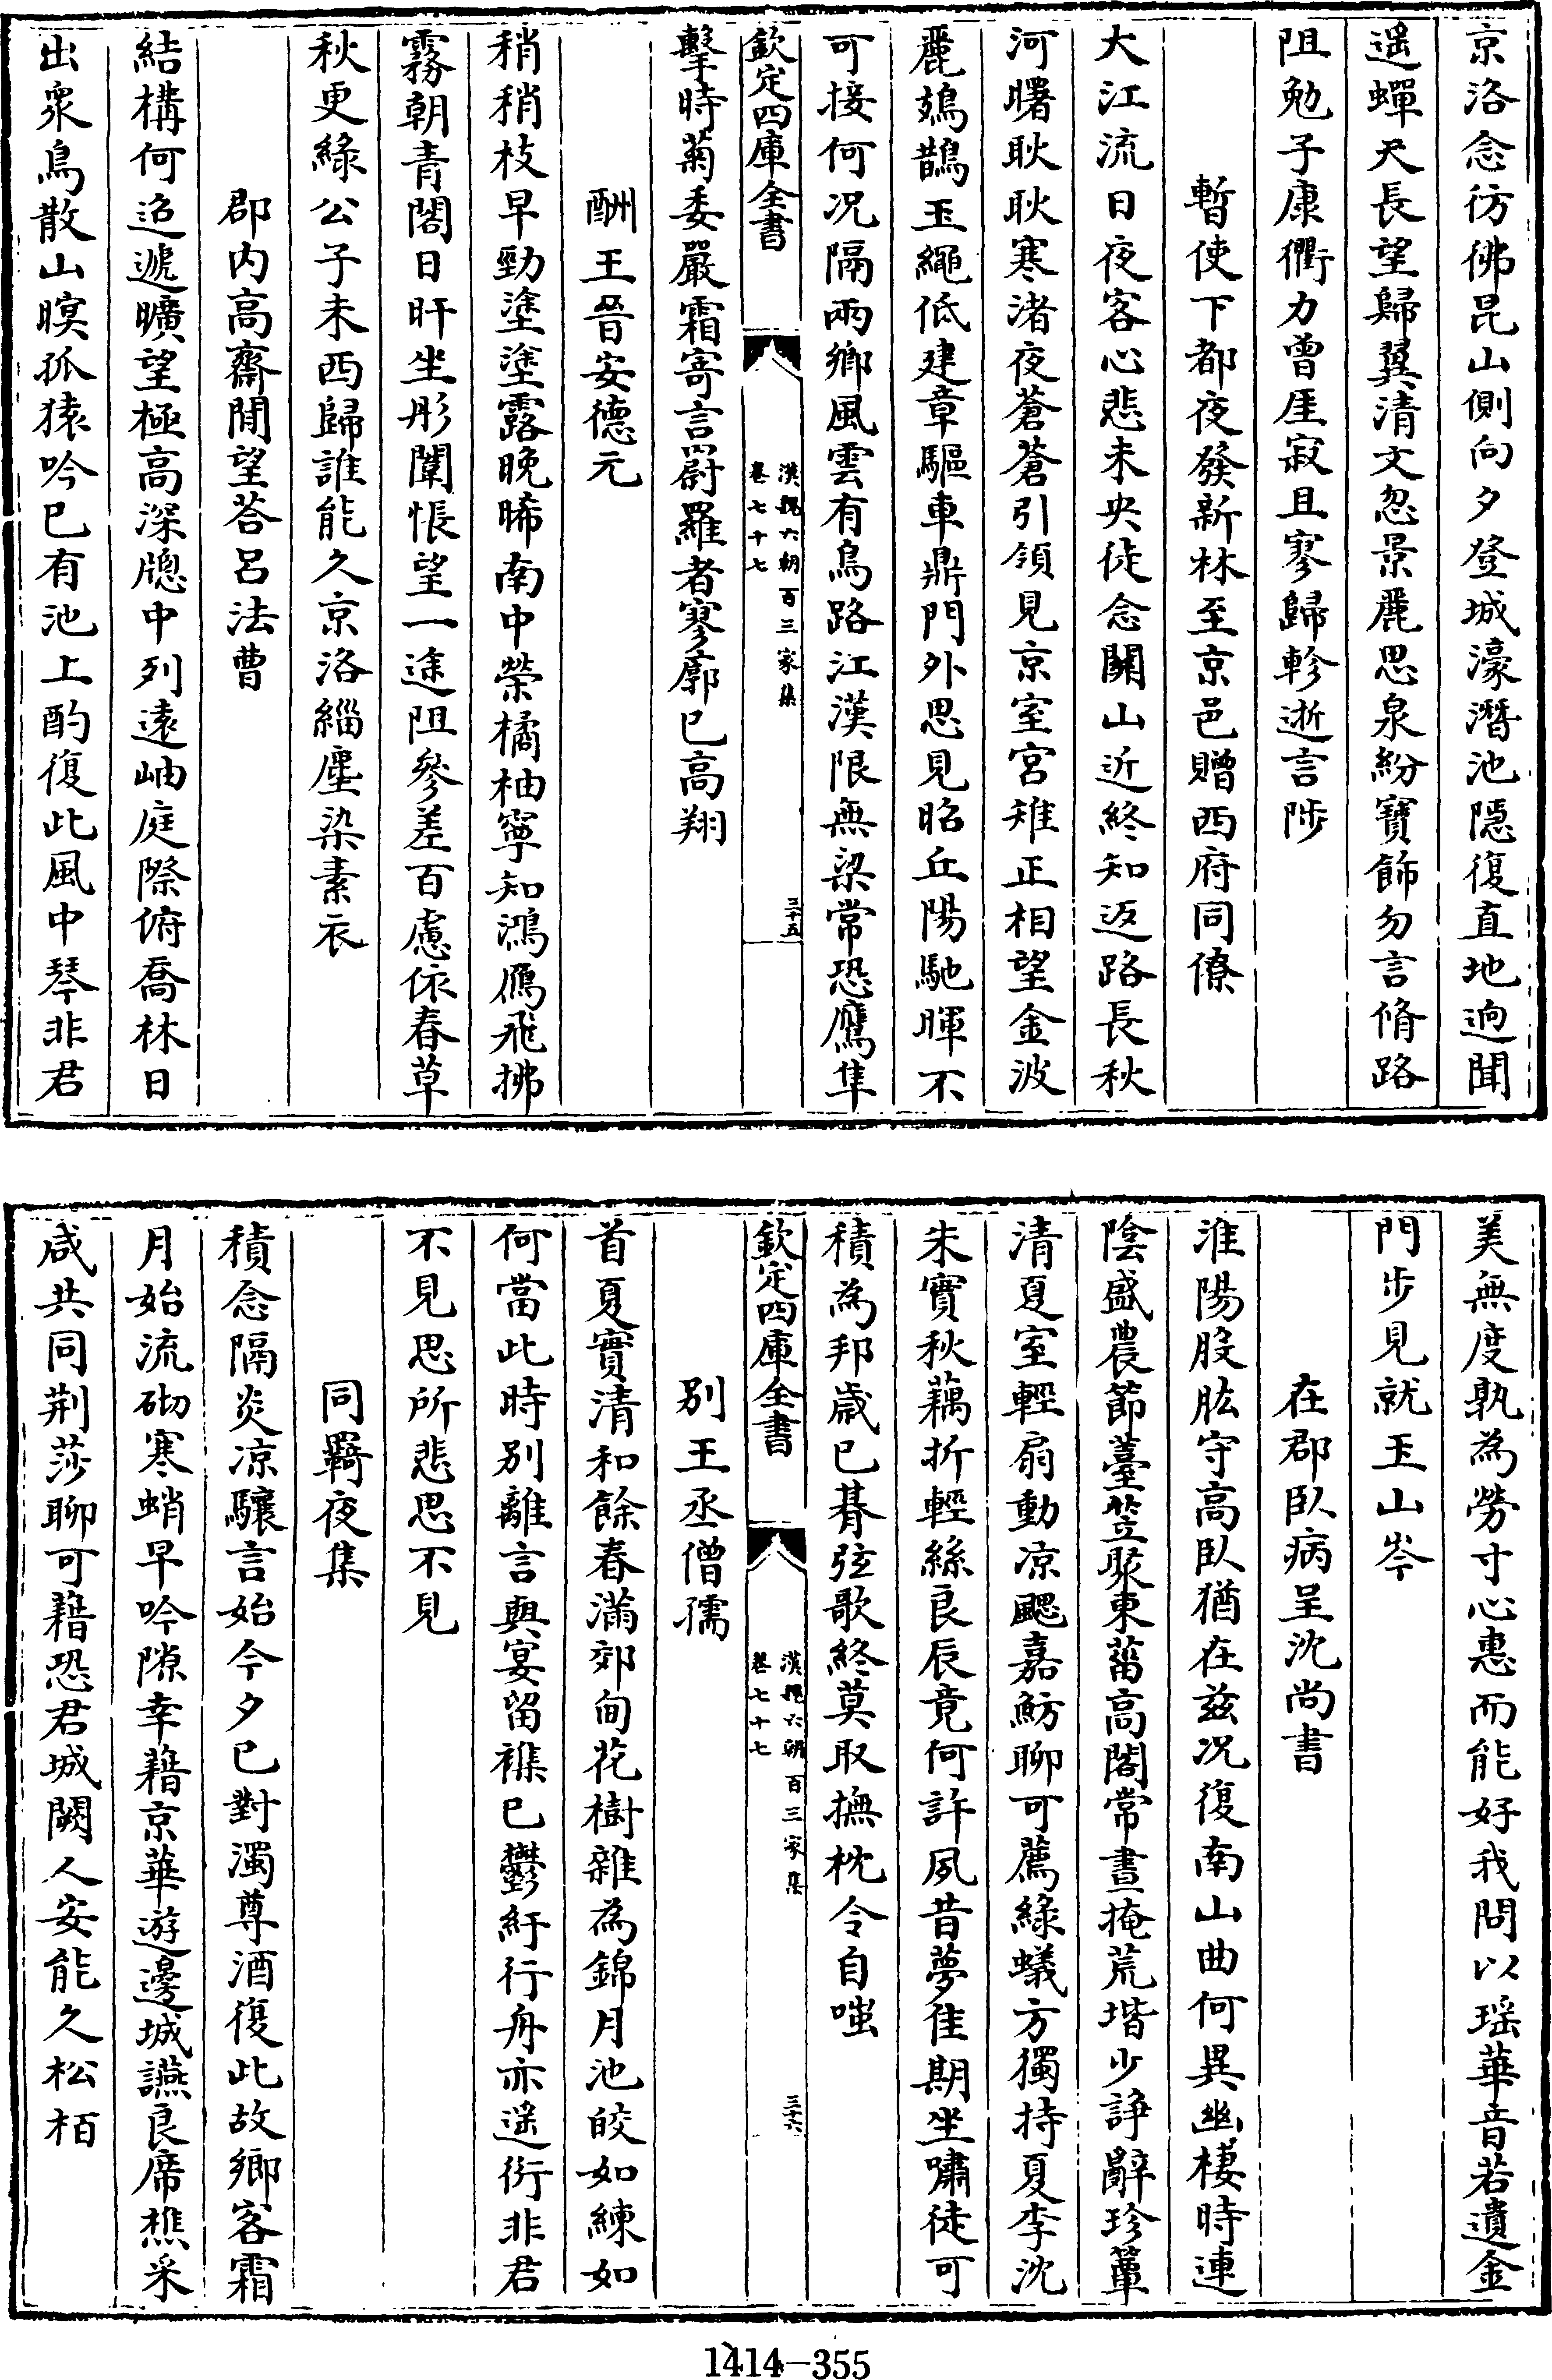 京洛念彷佛昆山側向夕登城濠潛池隱復直地迥聞
遥蟬天長望歸翼清文忽景麗思泉紛寶飾勿言脩路
阻勉子康衢力曾厓寂且寥歸軫逝言陟
暫使下都夜發新林至京邑贈西府同僚
大江流日夜客心悲未央徒念闗山近終知返路長秋
河曙耿耿寒渚夜蒼蒼引領見京室宮雉正相望金波
麗鳷鵲玉繩低建章驅車鼎門外思見昭丘陽馳暉不
可接何况隔兩鄉風雲有鳥路江漢限無梁常恐鷹隼
欽定四庫全書
漢魏六朝百三家集
卷七十七
三十五
擊時菊委嚴霜寄言罻羅者寥廓已高翔
酬王晉安德元
稍稍枝早勁塗塗露晚晞南中榮橘柚寧知鴻鴈飛拂
霧朝青閣日旰坐彤闈悵望一途阻參差百慮依春草
秋更綠公子未西歸誰能久京洛緇塵染素衣
郡内高齋閒望荅呂法曹
結構何迢遞曠望極高深牕中列遠岫庭際俯喬林日
出衆鳥散山暝孤猿吟已有池上酌復此風中琴非君
美無度孰為勞寸心惠而能好我問以瑶華音若遺金
門步見就玉山岑
在郡臥病呈沈尚書
淮陽股肱守高臥猶在兹况復南山曲何異幽棲時連
陰盛農節薹笠聚東菑高閣常晝掩荒堦少諍辭珍簟
清夏室輕扇動凉颸嘉魴聊可薦綠蟻方獨持夏李沈
朱實秋藕折輕絲良辰竟何許夙昔夢佳期坐嘯徒可
積為邦歲已朞弦歌終莫取撫枕令自嗤
欽定四庫全書
漢魏六朝百三家集
卷七十七
三十六
别王丞僧孺
首夏實清和餘春滿郊甸花樹雜為錦月池皎如練如
何當此時別離言與宴留襍已鬱紆行舟亦遥衍非君
不見思所悲思不見
同羇夜集
積念隔炎凉驤言始今夕已對濁尊酒復此故鄉客霜
月始流砌寒蛸早吟隙幸藉京華遊邊城讌良席樵采
咸共同荆莎聊可藉恐君城闕人安能久松栢
1414-355